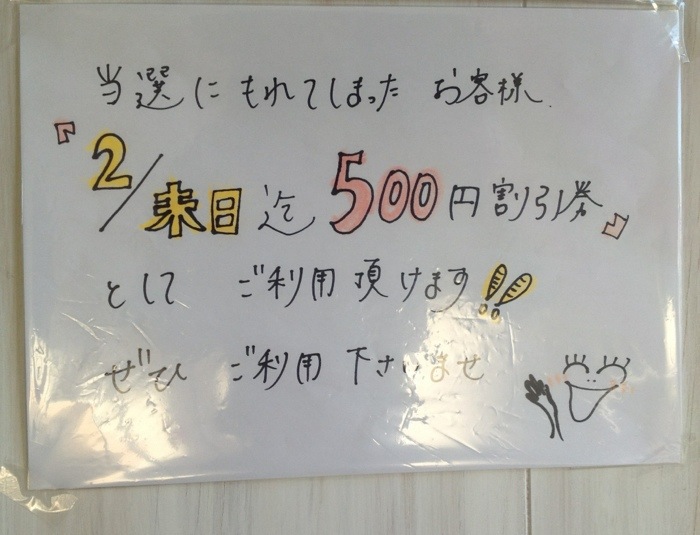 当選にもれてしまった お客様
『2/来日迄 500円割引券』
として ご利用頂けます!!
ぜひ ご利用下さいませ